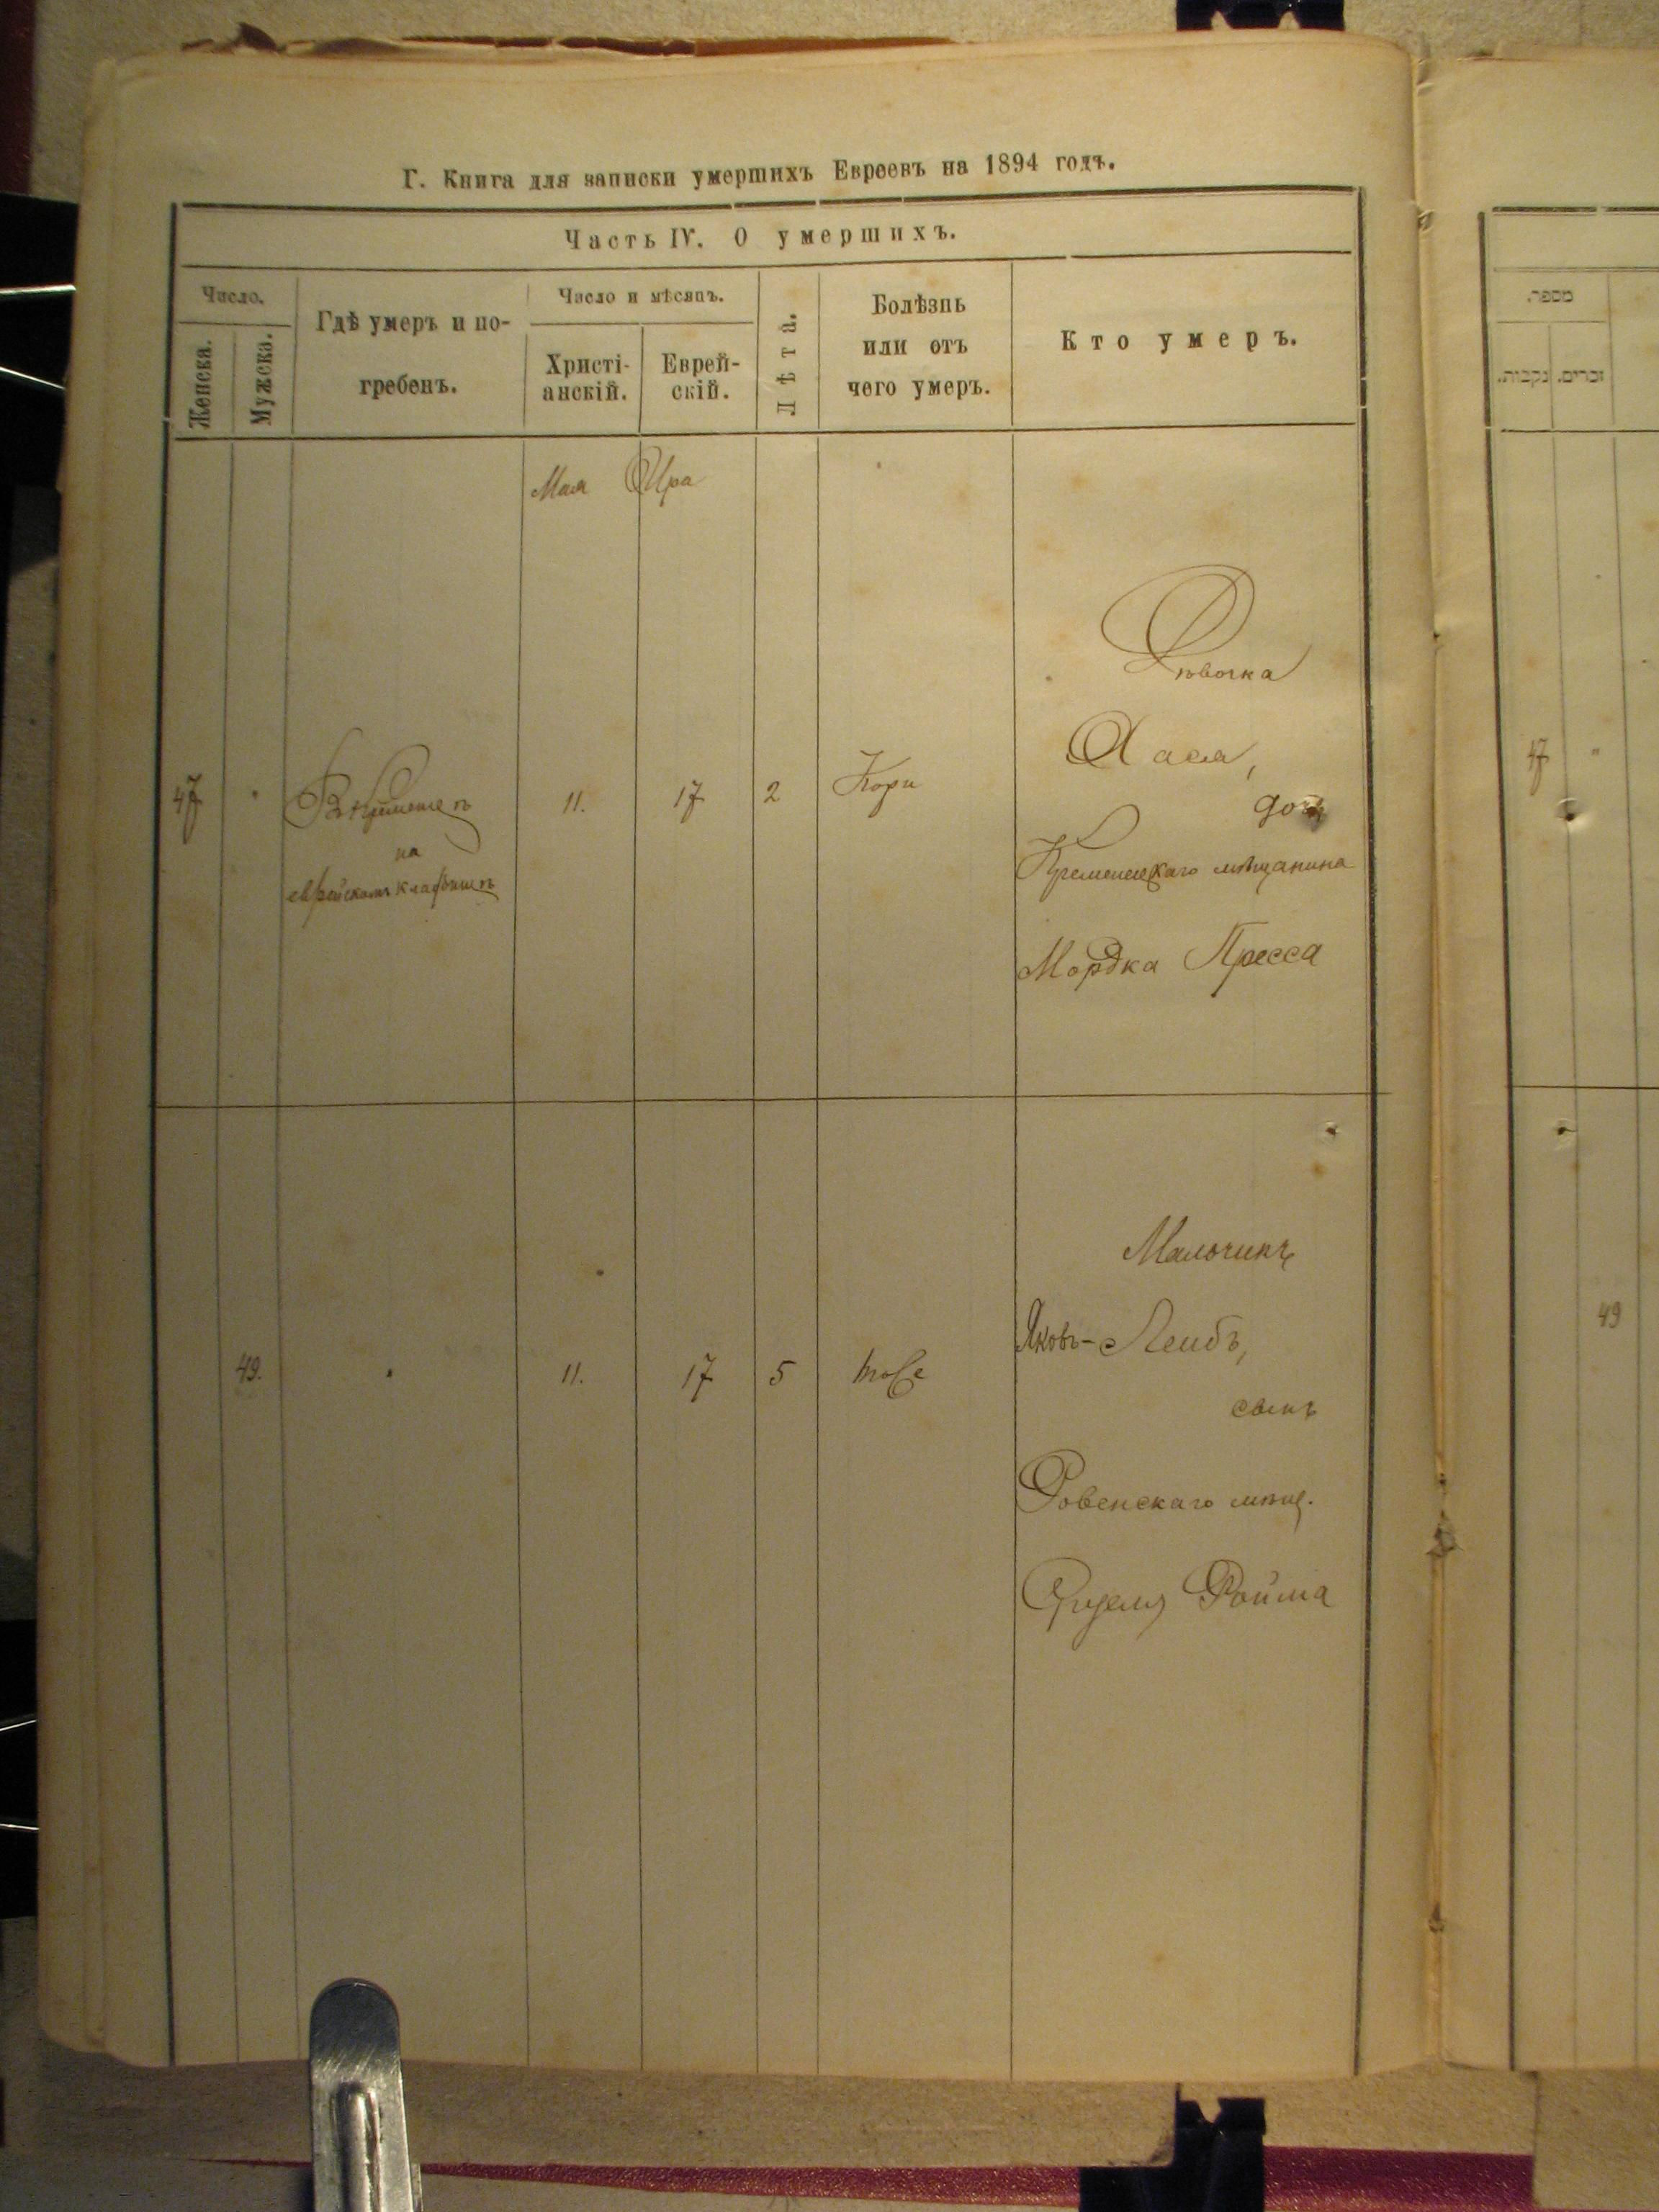 Г. Книга для записки умершихъ Евреевъ на 1894 годъ.
Часть IV. О умершихъ.
Число.
Женска.
Мужска.
Гдѣ умеръ и по-
гребенъ.
Число и мѣсяцъ.
Христі-
анскій.
Еврей-
скій.
Лѣта.
Болѣзнь
или отъ
чего умеръ.
Кто умеръ.
Мая Ира
47
"
В Кременцѣ
на
еврейскомъ кладбищѣ
11.
17
2
Кори
Дѣвочка
Хася,
дочь
Кременецкаго мѣщанина
Мордка Пресса
49.
"
11.
17
5
тоже
Мальчикъ
Яковъ-Лейбъ,
сынъ
Ровенскаго мѣщ.
Ройма
מספר.
זכרים.
נקבות.
47 "
49